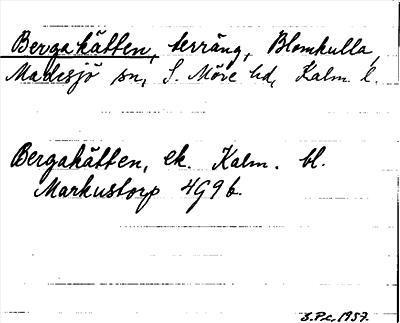 Bergakätten, terräng, Blomkulla,
Madesjö sn, S. Möre hd, Kalm. l.
Bergakätten, ek. Kalm. bl.
Markustorp 4G9b.
S.P-c, 1957.